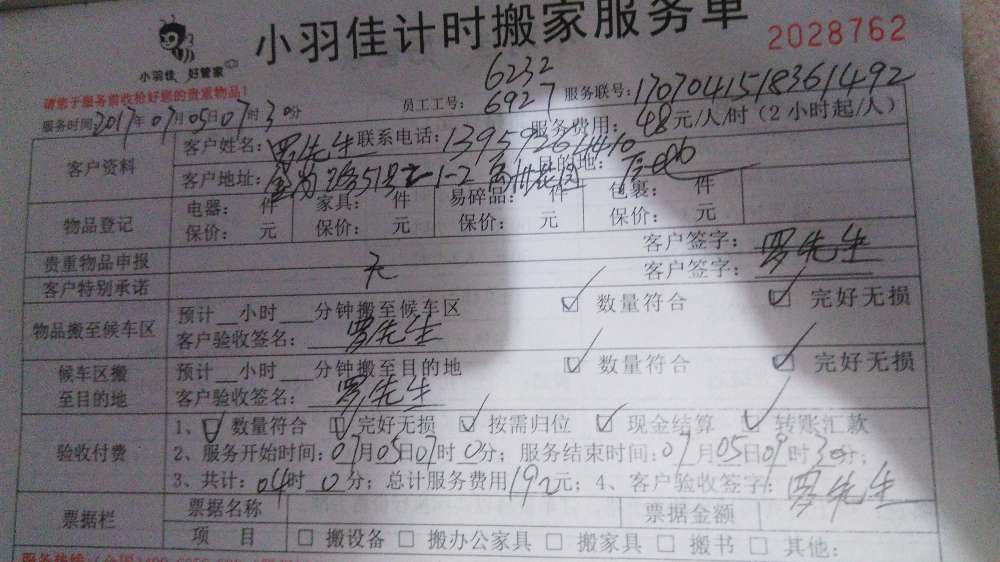 小羽佳计时搬家服务单
小羽佳 好管家
2028762
请您于服务前收拾好您的贵重物品!
员工工号: 6232 6927 服务联号: 1707041518361492
服务时间: 2017年07月05日07时30分
服务费用: 48元/人/时(2小时起/人)
客户资料
客户姓名: 罗先生 联系电话:
客户地址: 1-2 目的地:
物品登记
电器: 件 家具: 件 易碎品: 件 包裹: 件
保价: 元 保价: 元 保价: 元 保价: 元
贵重物品申报 客户签字: 罗先生
客户特别承诺 无 客户签字:
物品搬至候车区
预计__小时___分钟搬至候车区 数量符合 完好无损
客户验收签名: 罗先生
候车区搬至目的地
预计__小时___分钟搬至目的地 数量符合 完好无损
客户验收签名: 罗先生
验收付费
1、 数量符合 完好无损 按需归位 现金结算 转账汇款
2、服务开始时间: 07月05日07时0分; 服务结束时间: 07月05日09时30分;
3、共计: 04时0分; 总计服务费用192元; 4、客户验收签字: 罗先生
票据栏
票据名称 票据金额
项 目 搬设备 搬办公家具 搬家具 搬书 其他:
服务热线